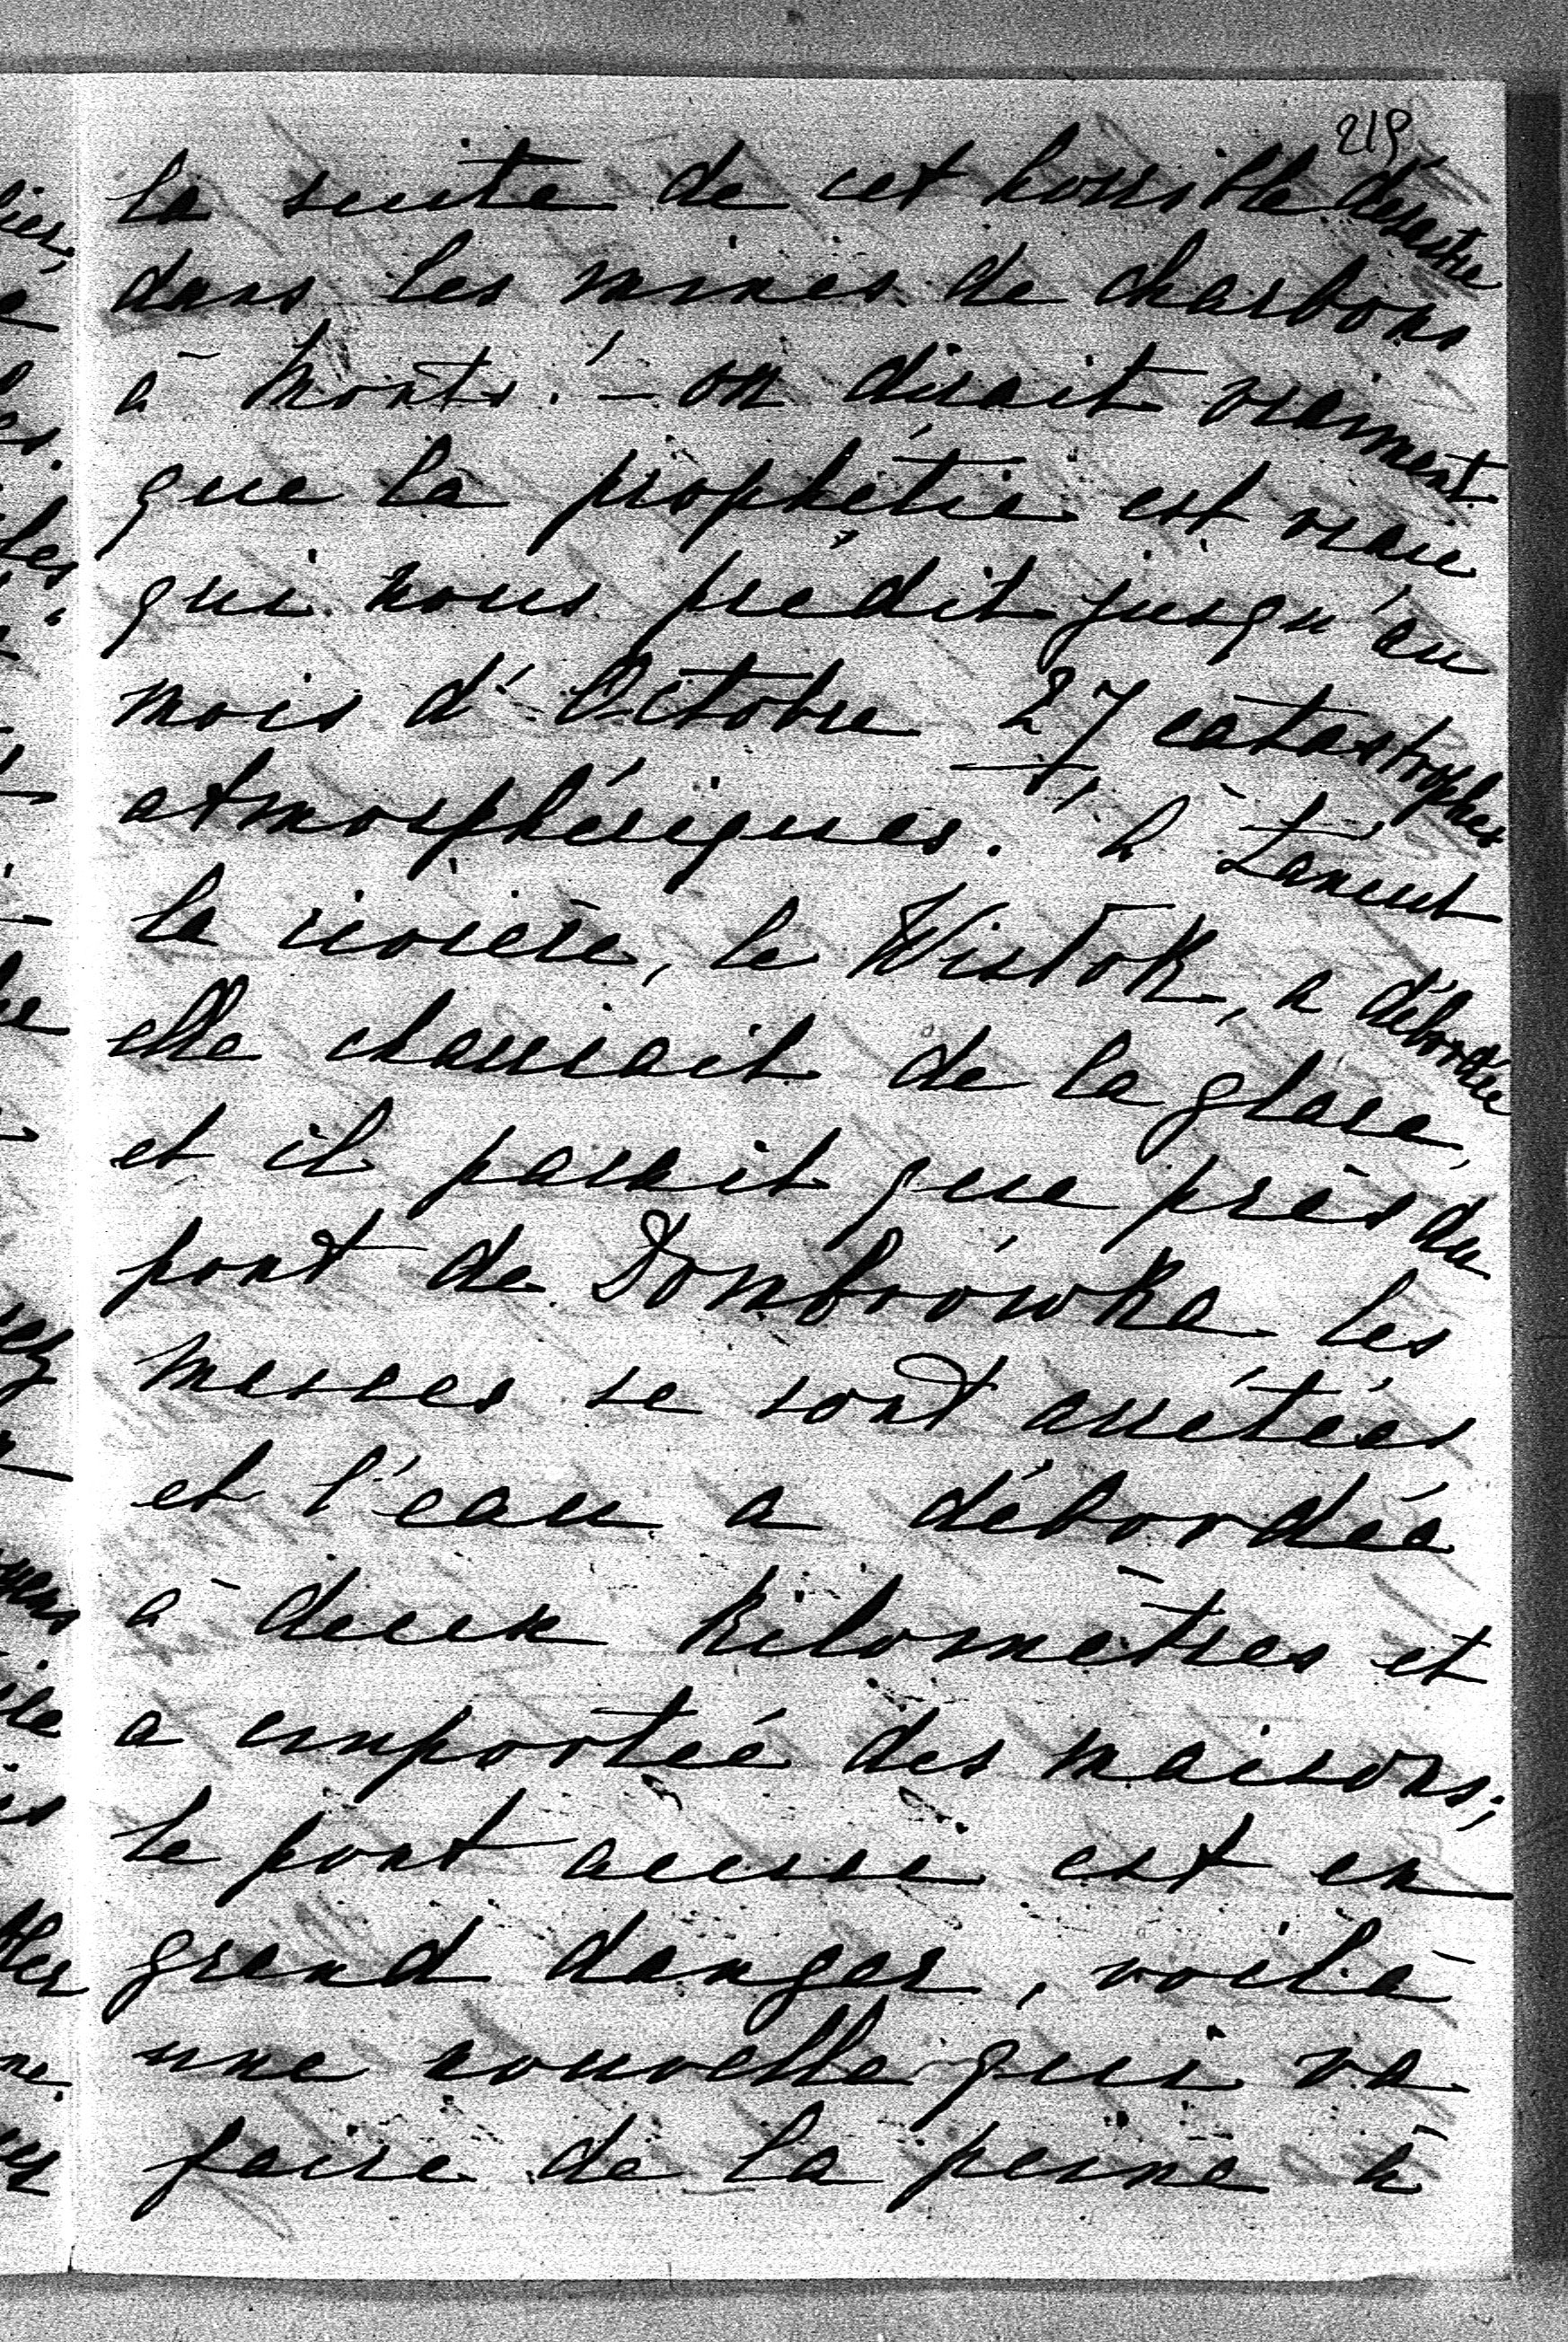 219
la suite de cet horrible désastre
dans les mines de charbons
à Monts! — on dirait vraiment
que la prophétie est vraie
qui nous prédit jusqu'au
mois d'Octobre 27 catastrophes
atmosphériques. — A Łańcut
la rivière, le Wisłok, a débordée
elle charriait de la glace,
et il parait que près du
pont de Dombrówka les
masses se sont arrêtées
et l'eau a débordée
à deux kilomètres et
a emportée des maisons;
le pont aussi est en
grand danger, voilà
une nouvelle qui va
faire de la peine à